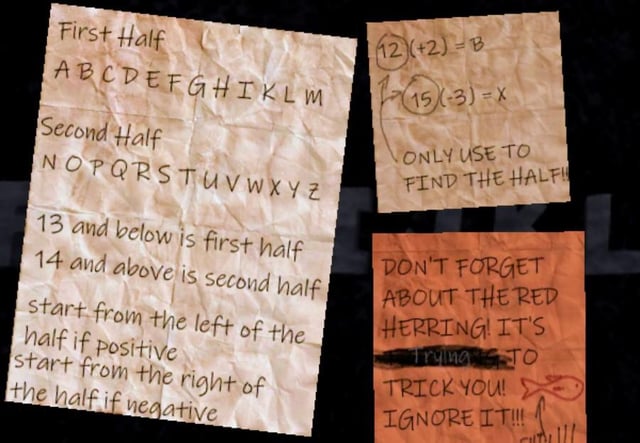 First Half
A B C D E F G H I K L M
Second Half
N O P Q R S T U V W X Y Z
13 and below is first half
14 and above is second half
start from the left of the
half if positive
start from the right of
the half if negative
12 (+2) = B
15 (-3) = X
ONLY USE TO
FIND THE HALF!!
DON'T FORGET
ABOUT THE RED
HERRING! IT'S
Trying TO
TRICK YOU!
IGNORE IT!!!